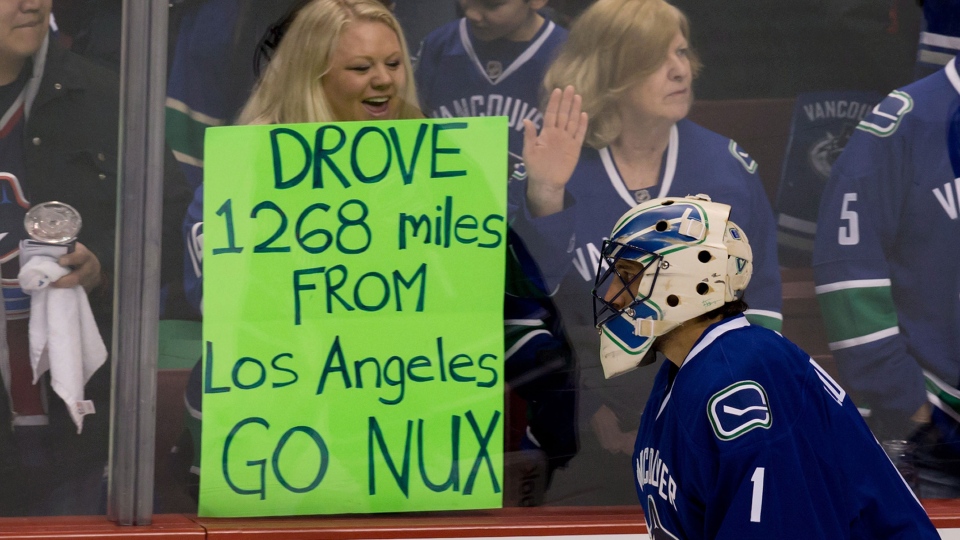 DROVE
1268 miles
FROM
Los Angeles
GO NUX
VANCOUVER
VANCOUV
5
V
VANCOUVER
1